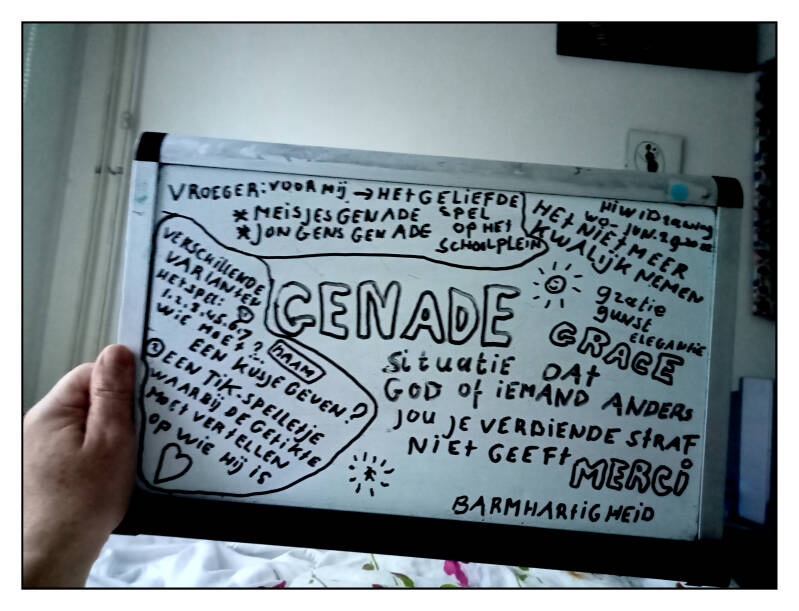 VROEGER: VOOR MIJ → HET GELIEFDE
* MEISJESGENADE SPEL
* JONGENS GENADE OP HET
SCHOOLPLEIN
HET NIET MEER
KWALIJK NEMEN
VERSCHILLENDE
VARIANTEN
HET SPEL: ①
1.2.3.4.5.6.7?
WIE MOET...
NAAM
EEN KUSJE GEVEN?
② EEN TIK-SPELLETJE
WAARBIJ DE GETIKTE
MOET VERTELLEN
OP WIE HIJ IS
GENADE
gratie
gunst
ELEGANTIE
GRACE
Situatie DAT
GOD Of iEMAND ANDERS
JOU JE VERDIENDE StRAF
NIEt GEEFt
MERCi
BARMHARtiGHEiD